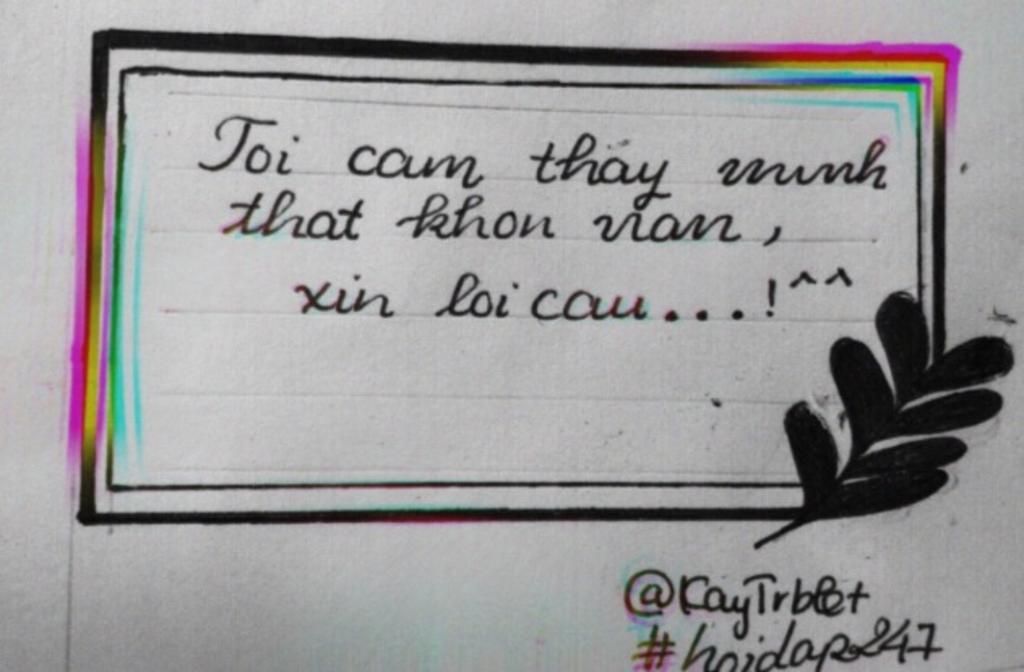 Toi cam thay minh
that khon nan,
xin loi cau...!^^
@KayTrblet
#hoidap247